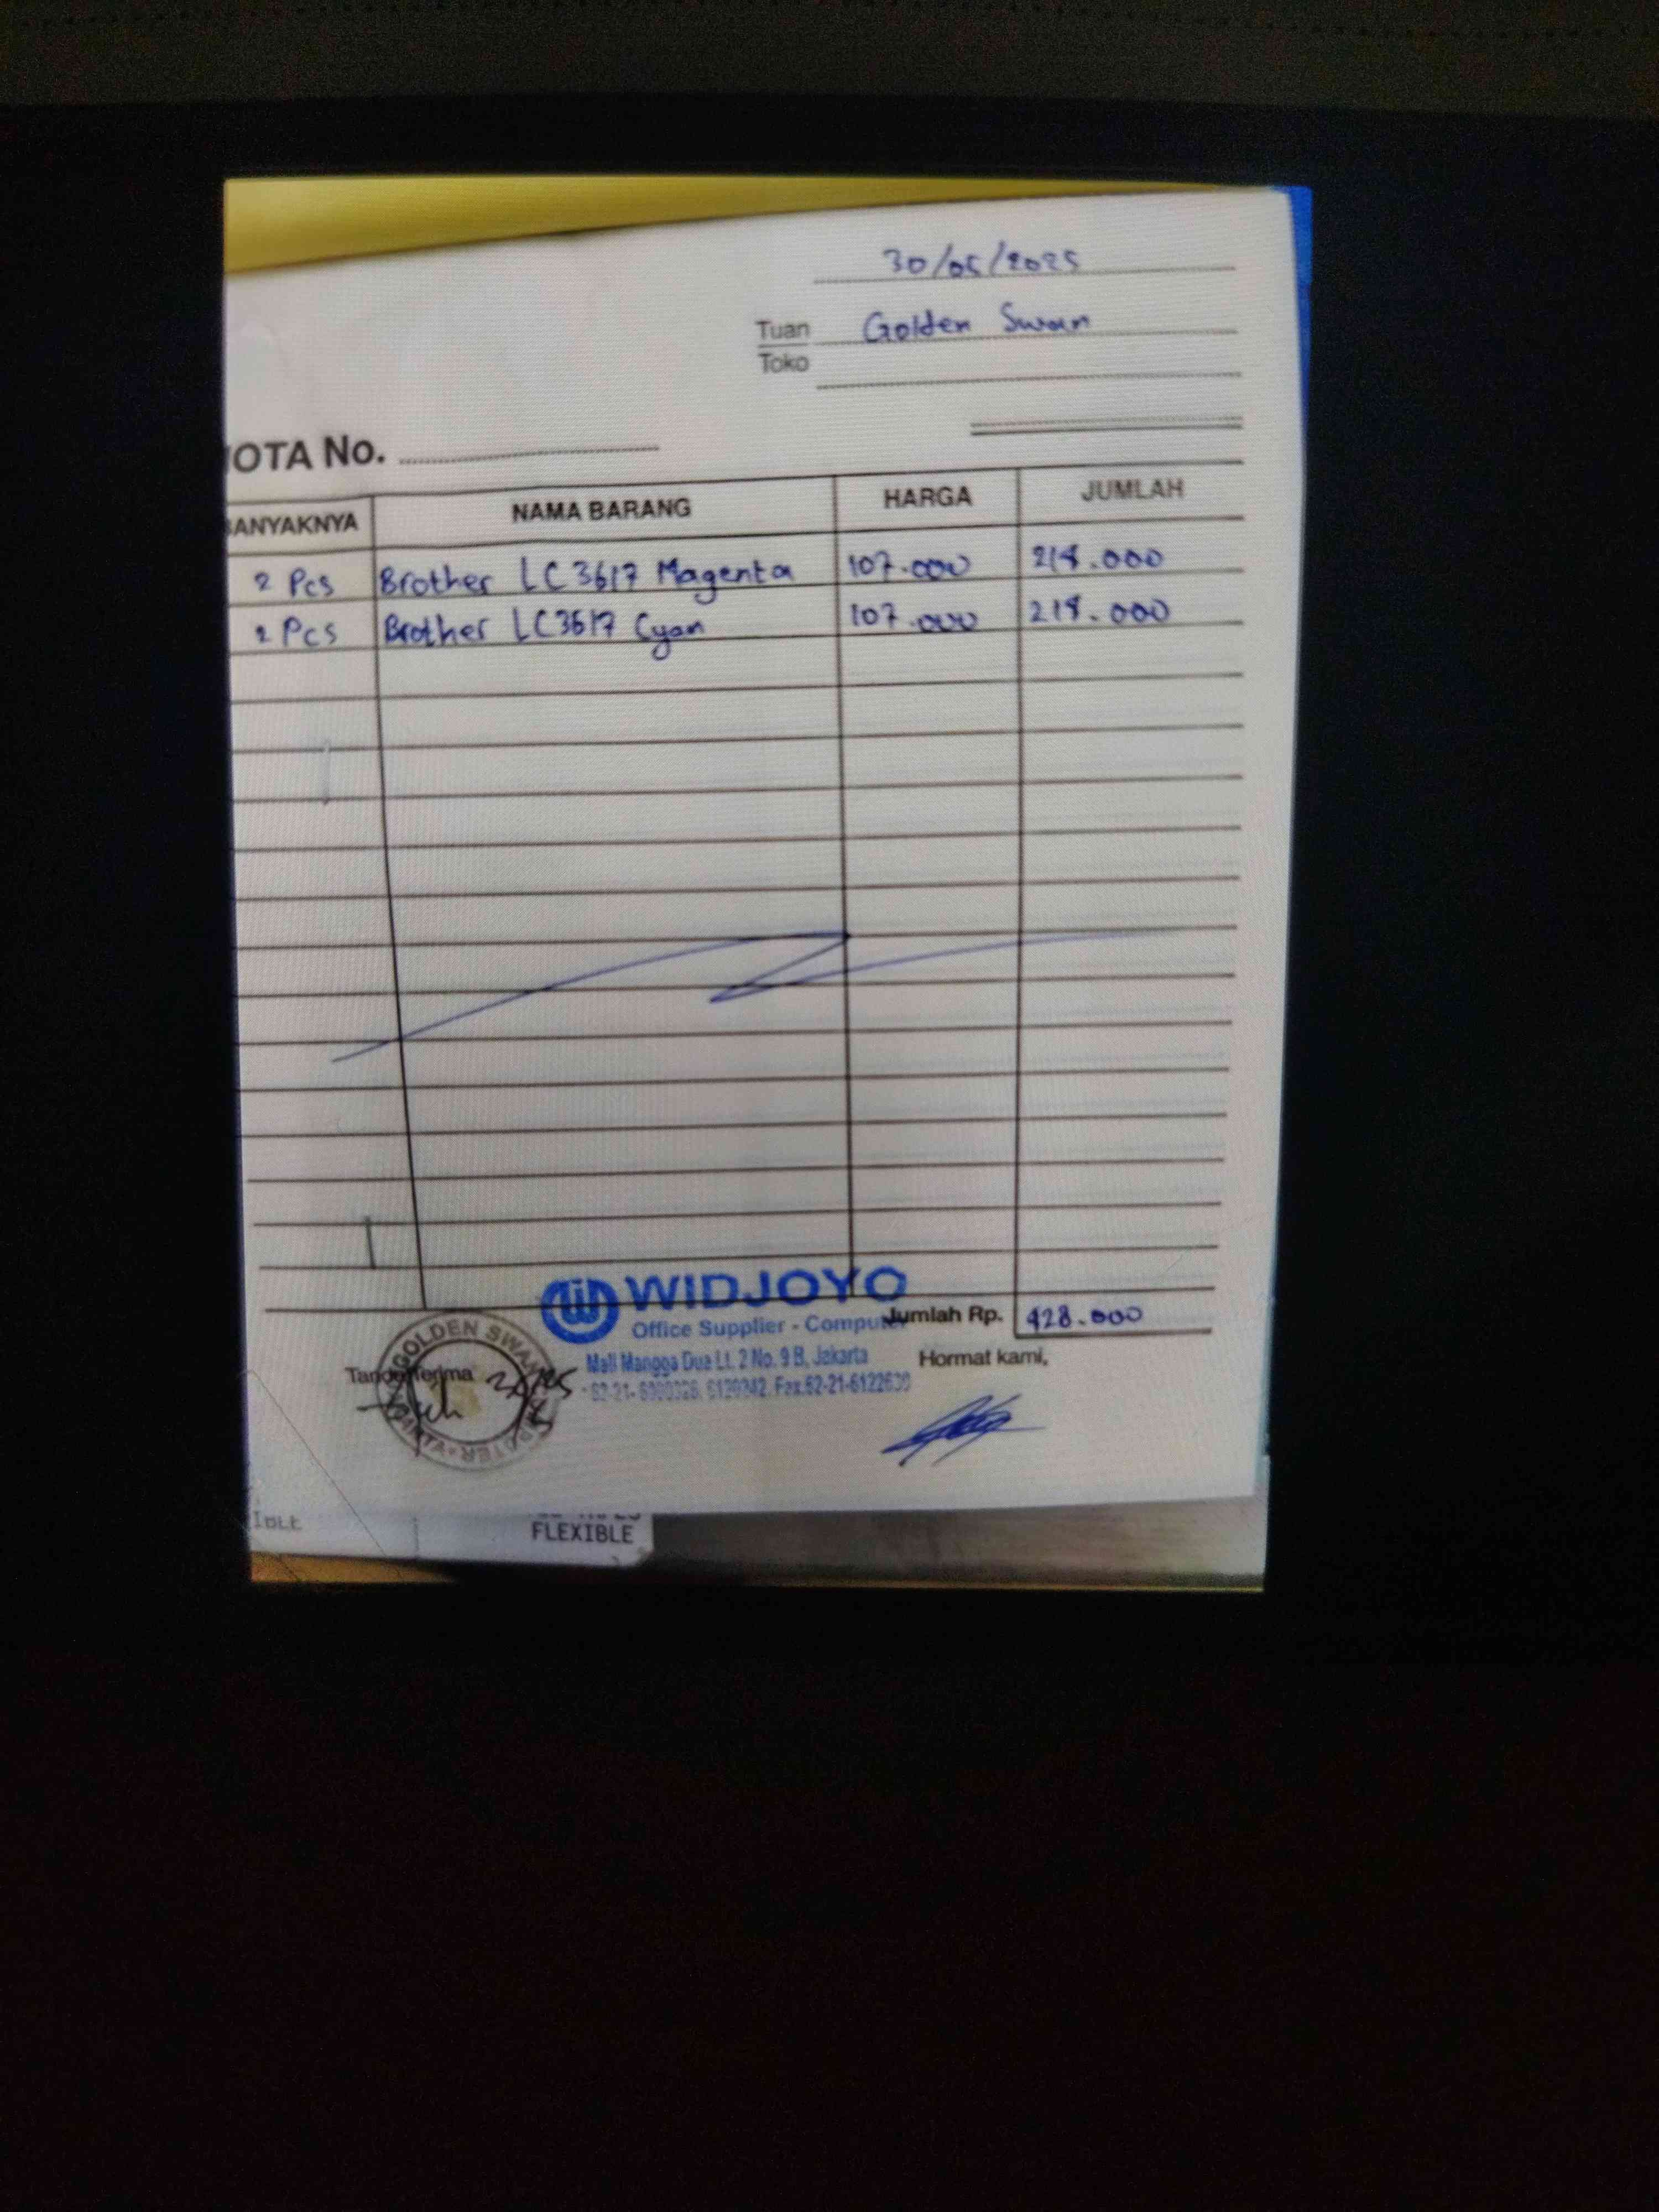 30/05/2025
Tuan Golden Swan
Toko
OTA No.
BANYAKNYA NAMA BARANG HARGA JUMLAH
2 Pcs Brother LC 3617 Magenta 107.000 214.000
2 Pcs Brother LC3617 Cyan 107.000 214.000
WIDJOYO
Office Supplier - Computer
Jumlah Rp. 428.000
Mall Mangga Dua Lt. 2 No. 9 B, Jakarta
Hormat kami,
Tanda Terima
GOLDEN SWAN
FLEXIBLE